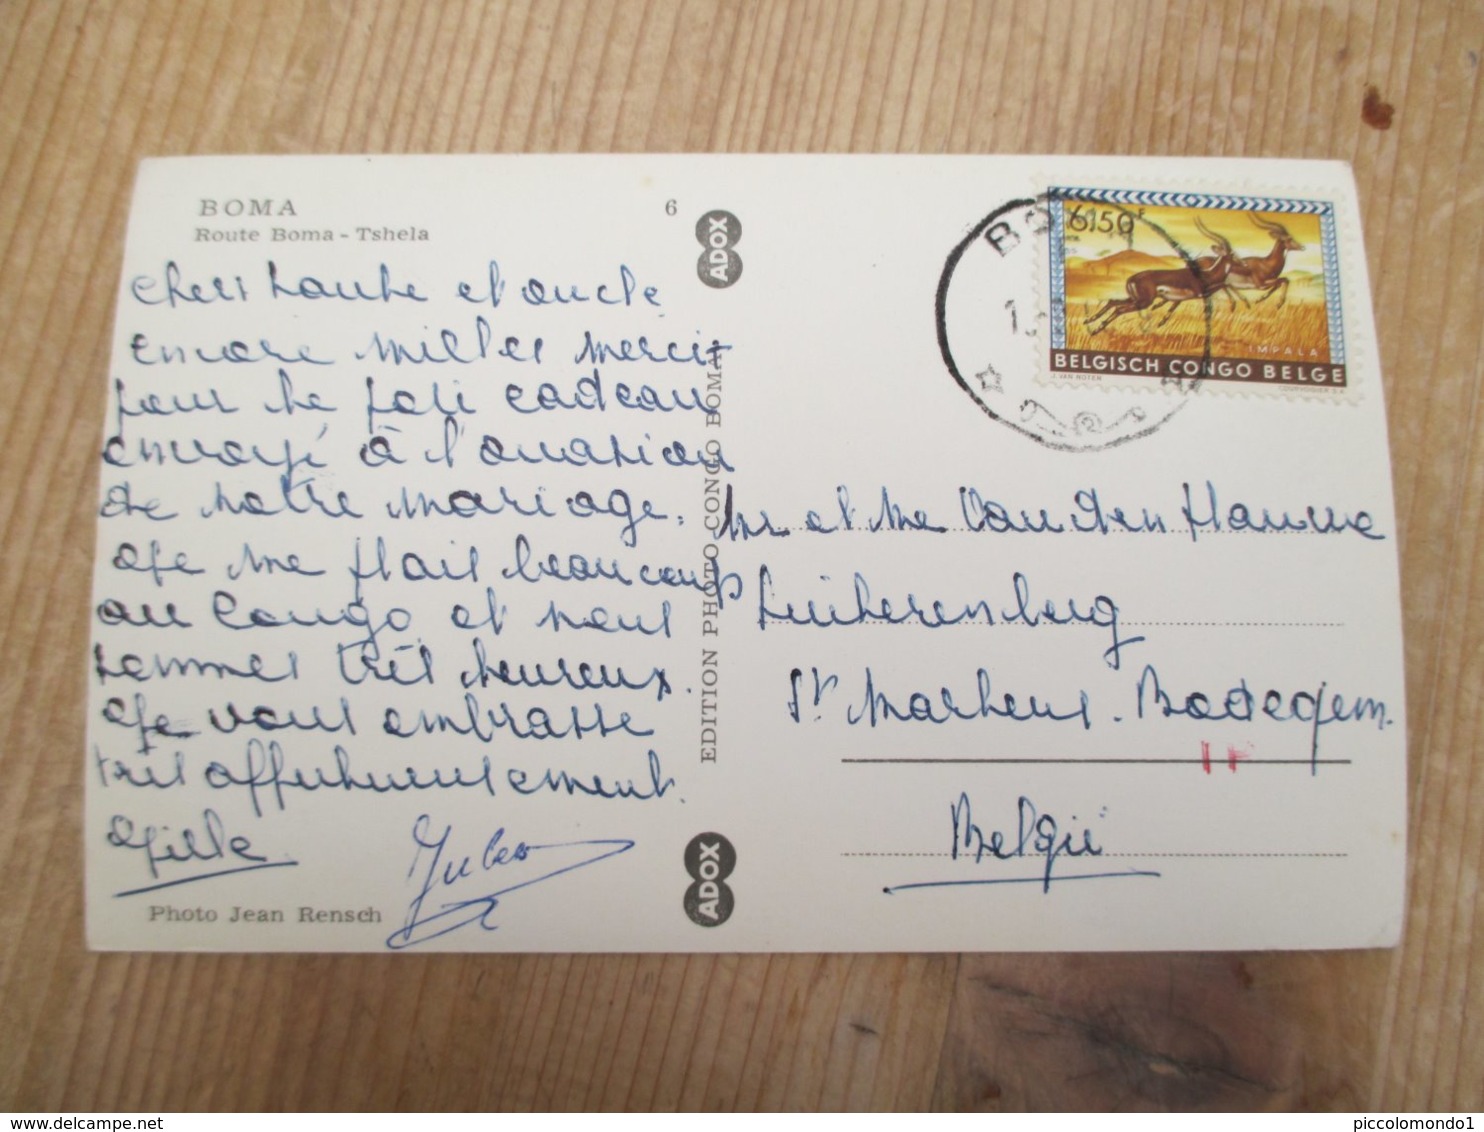 BOMA
Route Boma - Tshela
6
Chers tante et oncle
encore milles merci
pour le joli cadeau
envoyé à l'occasion
de notre mariage.
Je me plais beaucoup
au Congo et nous
sommes très heureux.
Je vous embrasse
très affectueusement.
Photo Jean Rensch
ADOX
EDITION PHOTO CONGO BOMA
ADOX
6,50F
IMPALA
BELGISCH CONGO BELGE
J. VAN NOTEN
COURVOISIER S.A.
BO
Mr et Me Van den
St Martens. Bodegem.
België
piccolomondo1